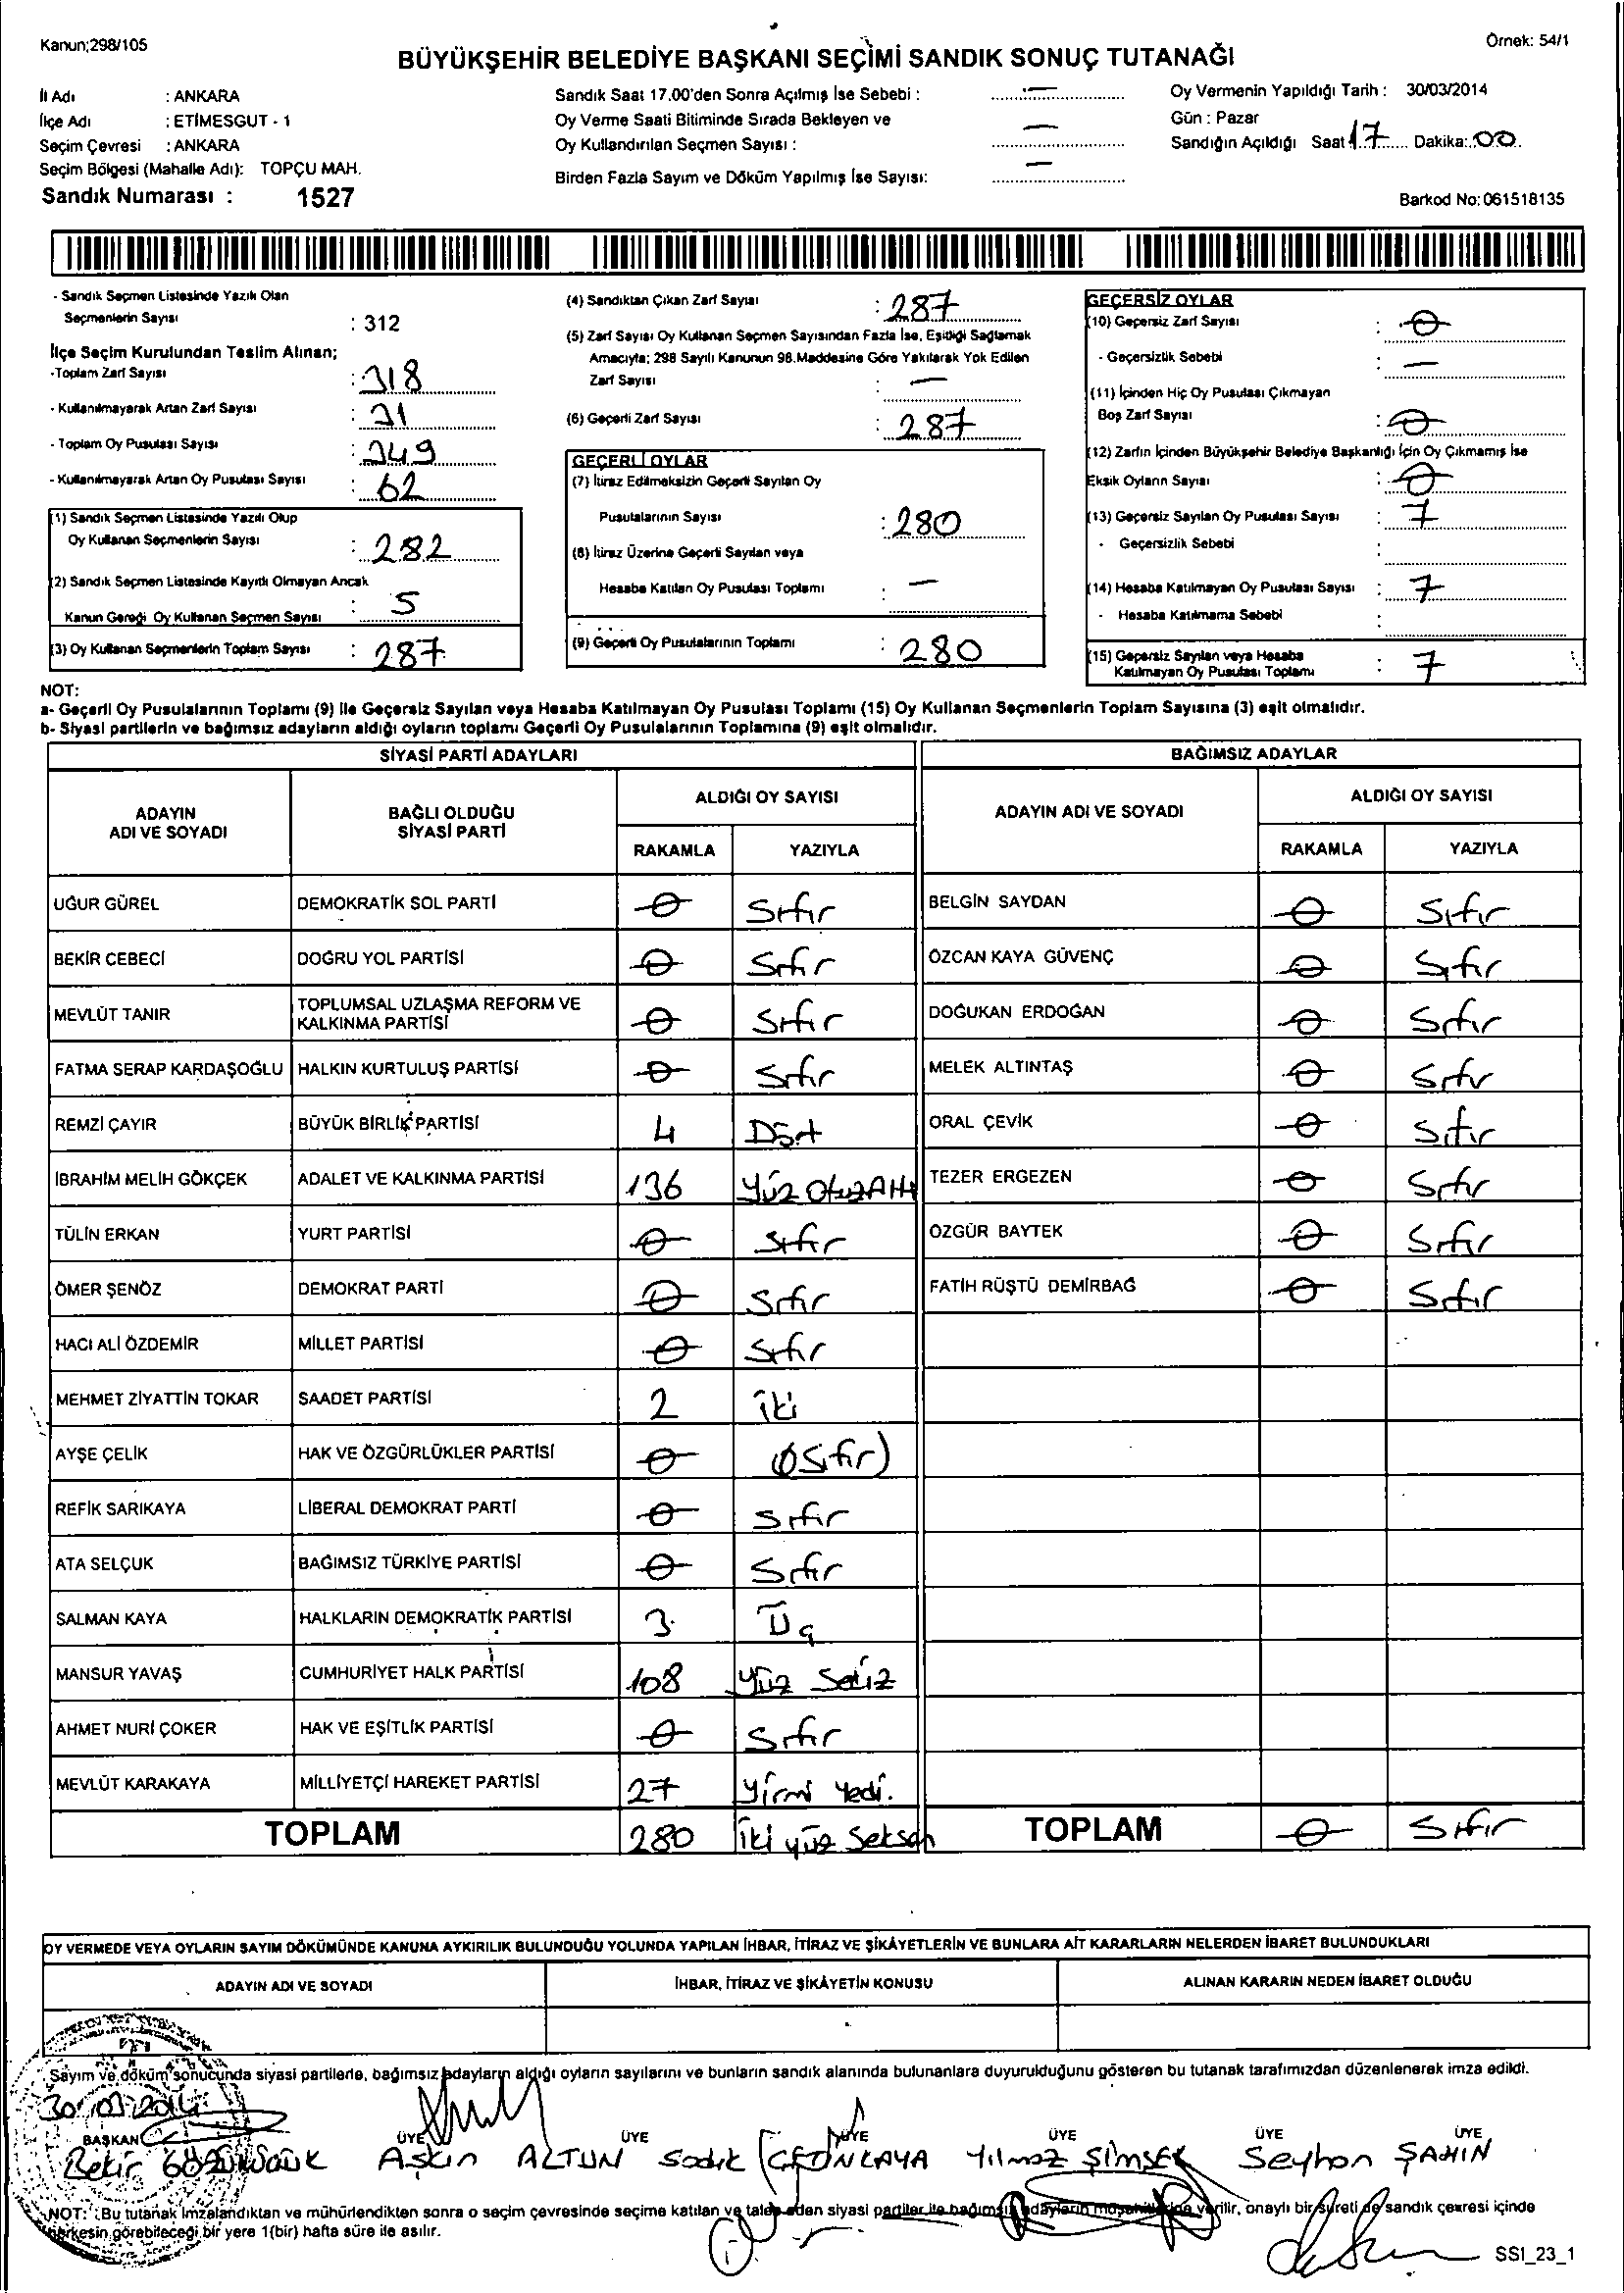 Kanun;298/105
Örnek: 54/1
BÜYÜKŞEHİR BELEDİYE BAŞKANI SEÇİMİ SANDIK SONUÇ TUTANAĞI
İl Adı : ANKARA
İlçe Adı : ETİMESGUT - 1
Seçim Çevresi : ANKARA
Seçim Bölgesi (Mahalle Adı): TOPÇU MAH.
Sandık Numarası : 1527
Sandık Saat 17.00'den Sonra Açılmış İse Sebebi : —
Oy Verme Saati Bitiminde Sırada Bekleyen ve
Oy Kullandırılan Seçmen Sayısı : —
Birden Fazla Sayım ve Döküm Yapılmış İse Sayısı: —
Oy Vermenin Yapıldığı Tarih : 30/03/2014
Gün : Pazar
Sandığın Açıldığı Saat 17 Dakika: 00
Barkod No:061518135
- Sandık Seçmen Listesinde Yazılı Olan
Seçmenlerin Sayısı : 312
İlçe Seçim Kurulundan Teslim Alınan;
-Toplam Zarf Sayısı : 318
- Kullanılmayarak Artan Zarf Sayısı : 31
- Toplam Oy Pusulası Sayısı : 349
- Kullanılmayarak Artan Oy Pusulası Sayısı : 62
(1) Sandık Seçmen Listesinde Yazılı Olup
Oy Kullanan Seçmenlerin Sayısı : 282
(2) Sandık Seçmen Listesinde Kayıtlı Olmayan Ancak
Kanun Gereği Oy Kullanan Seçmen Sayısı : 5
(3) Oy Kullanan Seçmenlerin Toplam Sayısı : 287
(4) Sandıktan Çıkan Zarf Sayısı : 287
(5) Zarf Sayısı Oy Kullanan Seçmen Sayısından Fazla İse, Eşitliği Sağlamak
Amacıyla; 298 Sayılı Kanunun 98.Maddesine Göre Yakılarak Yok Edilen
Zarf Sayısı : —
(6) Geçerli Zarf Sayısı : 287
GEÇERLİ OYLAR
(7) İtiraz Edilmeksizin Geçerli Sayılan Oy
Pusulalarının Sayısı : 280
(8) İtiraz Üzerine Geçerli Sayılan veya
Hesaba Katılan Oy Pusulası Toplamı : —
(9) Geçerli Oy Pusulalarının Toplamı : 280
GEÇERSİZ OYLAR
(10) Geçersiz Zarf Sayısı : 0
- Geçersizlik Sebebi : —
(11) İçinden Hiç Oy Pusulası Çıkmayan
Boş Zarf Sayısı : 0
(12) Zarfın İçinden Büyükşehir Belediye Başkanlığı İçin Oy Çıkmamış İse
Eksik Oyların Sayısı : 0
(13) Geçersiz Sayılan Oy Pusulası Sayısı : 7
- Geçersizlik Sebebi :
(14) Hesaba Katılmayan Oy Pusulası Sayısı : 7
- Hesaba Katılmama Sebebi :
(15) Geçersiz Sayılan veya Hesaba
Katılmayan Oy Pusulası Toplamı : 7
NOT:
a- Geçerli Oy Pusulalarının Toplamı (9) ile Geçersiz Sayılan veya Hesaba Katılmayan Oy Pusulası Toplamı (15) Oy Kullanan Seçmenlerin Toplam Sayısına (3) eşit olmalıdır.
b- Siyasi partilerin ve bağımsız adayların aldığı oyların toplamı Geçerli Oy Pusulalarının Toplamına (9) eşit olmalıdır.
SİYASİ PARTİ ADAYLARI
ADAYIN ADI VE SOYADI BAĞLI OLDUĞU SİYASİ PARTİ ALDIĞI OY SAYISI
RAKAMLA YAZIYLA
UĞUR GÜREL DEMOKRATİK SOL PARTİ 0 Sıfır
BEKİR CEBECİ DOĞRU YOL PARTİSİ 0 Sıfır
MEVLÜT TANIR TOPLUMSAL UZLAŞMA REFORM VE KALKINMA PARTİSİ 0 Sıfır
FATMA SERAP KARDAŞOĞLU HALKIN KURTULUŞ PARTİSİ 0 Sıfır
REMZİ ÇAYIR BÜYÜK BİRLİK PARTİSİ 4 Dört
İBRAHİM MELİH GÖKÇEK ADALET VE KALKINMA PARTİSİ 136 Yüz OtuzAltı
TÜLİN ERKAN YURT PARTİSİ 0 Sıfır
ÖMER ŞENÖZ DEMOKRAT PARTİ 0 Sıfır
HACI ALİ ÖZDEMİR MİLLET PARTİSİ 0 Sıfır
MEHMET ZİYATTİN TOKAR SAADET PARTİSİ 2 İki
AYŞE ÇELİK HAK VE ÖZGÜRLÜKLER PARTİSİ 0 (Sıfır)
REFİK SARIKAYA LİBERAL DEMOKRAT PARTİ 0 Sıfır
ATA SELÇUK BAĞIMSIZ TÜRKİYE PARTİSİ 0 Sıfır
SALMAN KAYA HALKLARIN DEMOKRATİK PARTİSİ 3 Üç
MANSUR YAVAŞ CUMHURİYET HALK PARTİSİ 108 Yüz Sekiz
AHMET NURİ ÇOKER HAK VE EŞİTLİK PARTİSİ 0 Sıfır
MEVLÜT KARAKAYA MİLLİYETÇİ HAREKET PARTİSİ 27 Yirmi Yedi.
TOPLAM 280 İki yüz Seksen
BAĞIMSIZ ADAYLAR
ADAYIN ADI VE SOYADI ALDIĞI OY SAYISI
RAKAMLA YAZIYLA
BELGİN SAYDAN 0 Sıfır
ÖZCAN KAYA GÜVENÇ 0 Sıfır
DOĞUKAN ERDOĞAN 0 Sıfır
MELEK ALTINTAŞ 0 Sıfır
ORAL ÇEVİK 0 Sıfır
TEZER ERGEZEN 0 Sıfır
ÖZGÜR BAYTEK 0 Sıfır
FATİH RÜŞTÜ DEMİRBAĞ 0 Sıfır
TOPLAM 0 Sıfır
OY VERMEDE VEYA OYLARIN SAYIM DÖKÜMÜNDE KANUNA AYKIRILIK BULUNDUĞU YOLUNDA YAPILAN İHBAR, İTİRAZ VE ŞİKÂYETLERİN VE BUNLARA AİT KARARLARIN NELERDEN İBARET BULUNDUKLARI
ADAYIN ADI VE SOYADI İHBAR, İTİRAZ VE ŞİKÂYETİN KONUSU ALINAN KARARIN NEDEN İBARET OLDUĞU
Sayım ve döküm sonucunda siyasi partilerle, bağımsız adayların aldığı oyların sayılarını ve bunların sandık alanında bulunanlara duyurulduğunu gösteren bu tutanak tarafımızdan düzenlenerek imza edildi.
30/03/2014
BAŞKAN ÜYE ÜYE ÜYE ÜYE ÜYE ÜYE
Bekir Aşkın ALTUN Sadık ÇETİNKAYA Yılmaz ŞİMŞEK Seyhan ŞAHİN
NOT: Bu tutanak İmzalandıktan ve mühürlendikten sonra o seçim çevresinde seçime katılan ve talep eden siyasi partiler ile bağımsız adayların müşahitlerine verilir, onaylı bir sureti de sandık çevresi içinde
herkesin görebileceği bir yere 1(bir) hafta süre ile asılır.
SSI_23_1